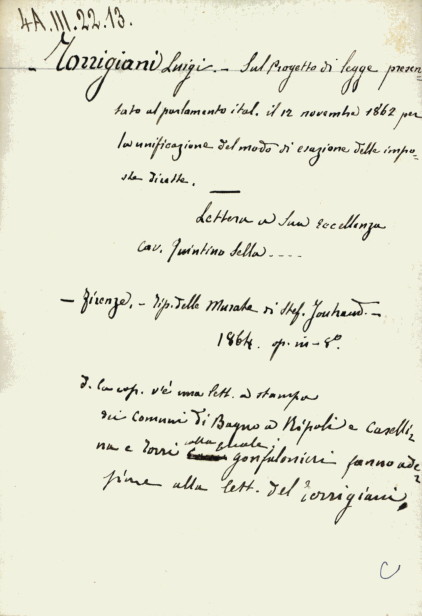 4A.III.22.13.
Torrigiani Luigi. - Sul Progetto di legge presen-
tato al parlamento ital. il 12 novembre 1862 per
la unificazione del modo di esazione delle impo-
ste dirette.
Lettera a Sua Eccellenza
cav. Quintino Sella ....
- Firenze. - Tip. delle Murate di Stef. Jouhaud. -
1864. op. in-8°.
la cop. v'è una lett. a stampa
dei Comuni di Bagno a Ripoli e Caselli-
na e Torri alla quale i gonfalonieri fanno ade-
sione alla lett. del Torrigiani.
C